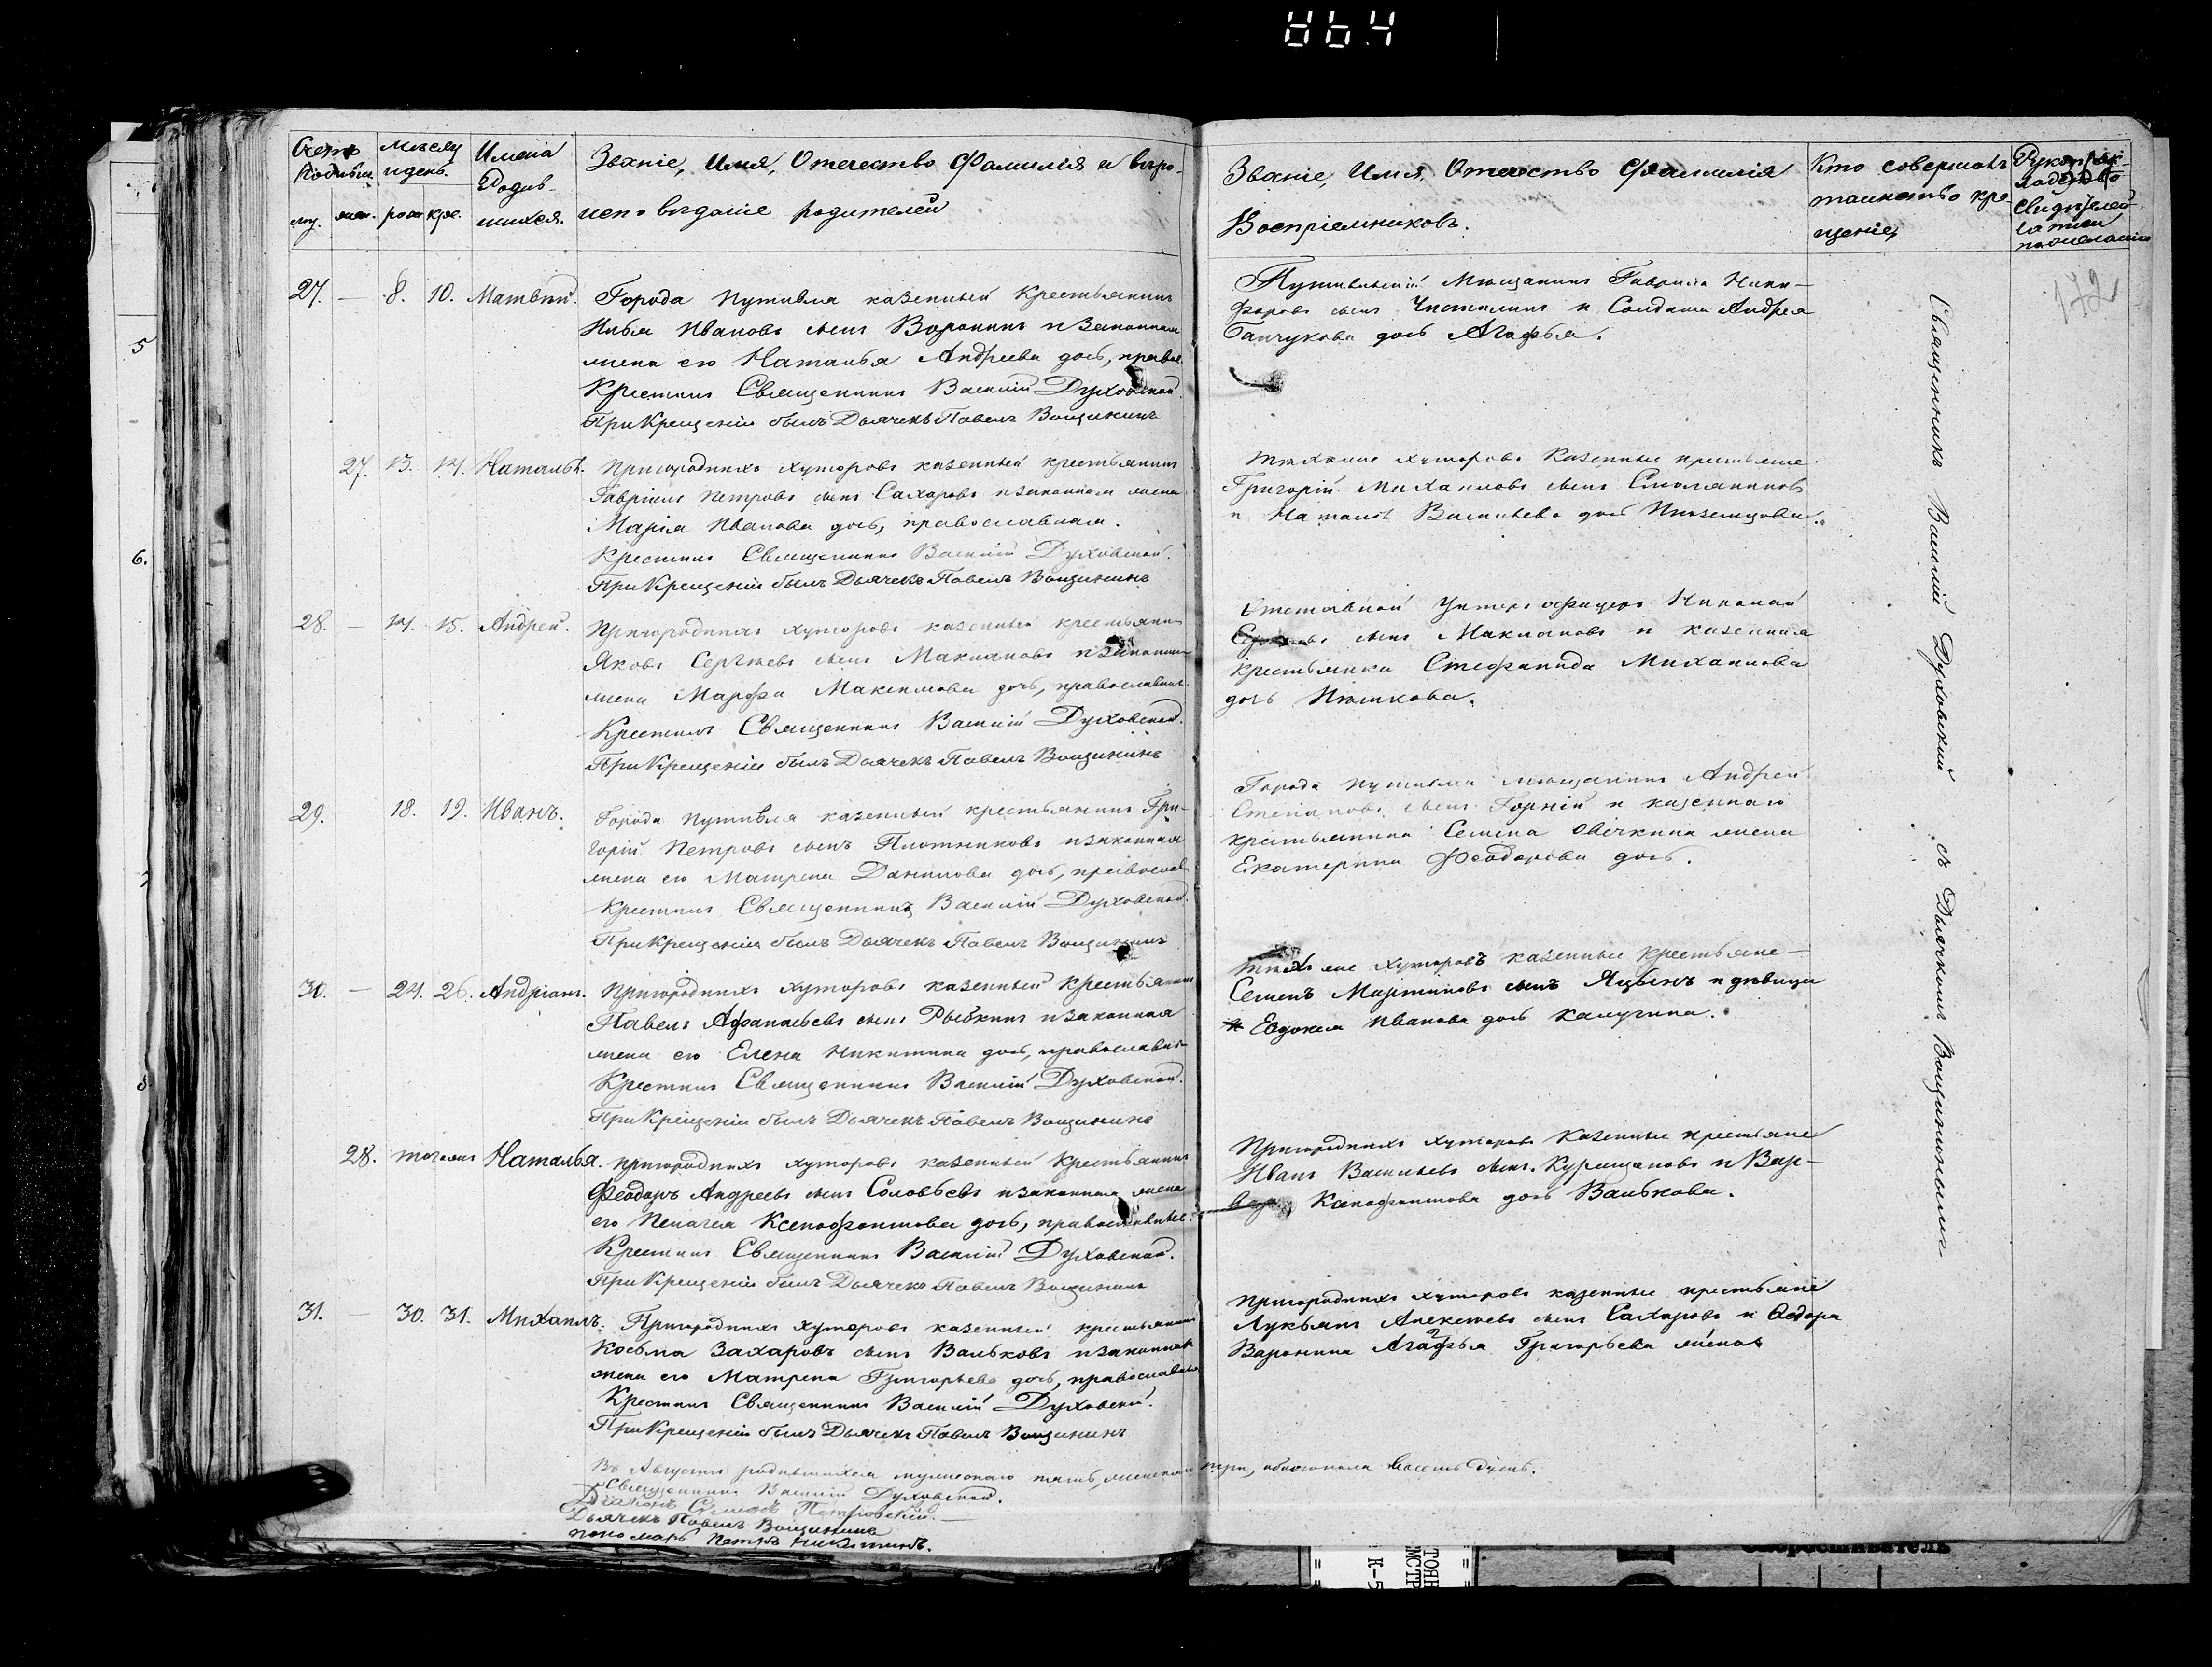 Счетъ родивш.
муж. жен.
Мѣсяцъ и день.
рож. кре.
Имена Родив-
шихся.
Званіе, Имя, Отчество Фамилія и вѣро-
исповѣданіе родителей
Званіе, Имя, Отчество Фамилія
Воспріемниковъ.
Кто совершалъ
таинство кре-
щенія
172
27. — 8. 10. Матвѣй. Города Путивля казенный крестьянинъ
Ивановъ сынъ Воронинъ и законная
жена его Наталья Андреева дочь, правос.
Крестилъ Священникъ Василій Духовской.
При Крещеніи былъ Дьячекъ Павелъ Вощининъ
Путивльскій Мѣщанинъ Гавріилъ Ники-
форовъ сынъ и Солдата Андрея
дочь Агафья.
27. 13. 14. Наталья. Пригородныхъ хуторовъ казенный крестьянинъ
Гавріилъ Петровъ сынъ Сахаровъ и законная жена
Марія Иванова дочь, православная.
Крестилъ Священникъ Василій Духовской.
При Крещеніи былъ Дьячекъ Павелъ Вощининъ
тѣхъ же хуторовъ Казенные крестьяне
Григорій Михаиловъ сынъ
и Наталья Васильева дочь
28. — 14. 15. Андрей. Пригородныхъ хуторовъ казенный крестьянинъ
Яковъ Сергѣевъ сынъ Маклаковъ и законная
жена Марфа Максимова дочь, православные.
Крестилъ Священникъ Василій Духовской.
При Крещеніи былъ Дьячекъ Павелъ Вощининъ
Отставной Унтеръ офицеръ Николай
сынъ Маклаковъ и казенная
крестьянка Стефанида Михаилова
дочь
29. 18. 19. Иванъ. Города Путивля казенный крестьянинъ Гри-
горій Петровъ сынъ Плотниковъ и законная
жена его Матрена Данилова дочь, православ.
Крестилъ Священникъ Василій Духовской.
При Крещеніи былъ Дьячекъ Павелъ Вощининъ
Города Путивля мѣщанинъ Андрей
Степановъ сынъ и казеннаго
крестьянина Семена Овечкина жена
Екатерина Феодорова дочь.
30. — 24. 26. Андріанъ. Пригородныхъ хуторовъ казенный крестьянинъ
Павелъ Афанасьевъ сынъ Рыбкинъ и законная
жена его Елена Никитина дочь, православн.
Крестилъ Священникъ Василій Духовской.
При Крещеніи былъ Дьячекъ Павелъ Вощининъ
тѣхъ же хуторовъ казенные крестьяне —
Семенъ Мартиновъ сынъ Яцынъ и дѣвица
Евдокія Иванова дочь Калугина.
28. того же Наталья. Пригородныхъ хуторовъ казенный крестьянинъ
Феодоръ Андреевъ сынъ Соловьевъ и законная жена
его Пелагея Ксенофонтова дочь, православные.
Крестилъ Священникъ Василій Духовской.
При Крещеніи былъ Дьячекъ Павелъ Вощининъ
Пригородныхъ хуторовъ казенные крестьяне
Иванъ Васильевъ сынъ и Вар-
вара Ксенофонтова дочь Валькова.
31. — 30. 31. Михаилъ. Пригородныхъ хуторовъ казенный крестьянинъ
Косьма Захаровъ сынъ Вальковъ и законная
жена его Матрена Григорьева дочь, православные
Крестилъ Священникъ Василій Духовской.
При Крещеніи былъ Дьячекъ Павелъ Вощининъ
Пригородныхъ хуторовъ казенные крестьяне
Лукьянъ Алексѣевъ сынъ Сахаровъ и Федора
Воронина Агафья Григорьева жена
Священникъ Василій Духовский съ Дьячкомъ Вощининымъ
Въ Августѣ родившихся мужескаго пять, женскаго три, обоего пола восемь душъ.
Священникъ Василій Духовской.
Діаконъ Петровский.
Дьячекъ Павелъ Вощининъ
пономарь Петръ Никитинъ.
5
6.